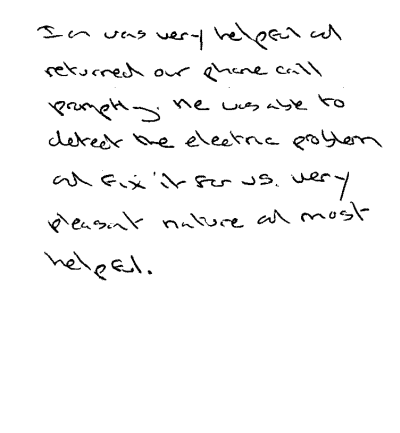 Ian was very helpful and
returned our phone call
promptly. He was able to
detect the electric problem
and fix it for us. Very
pleasant nature and most
helpful.